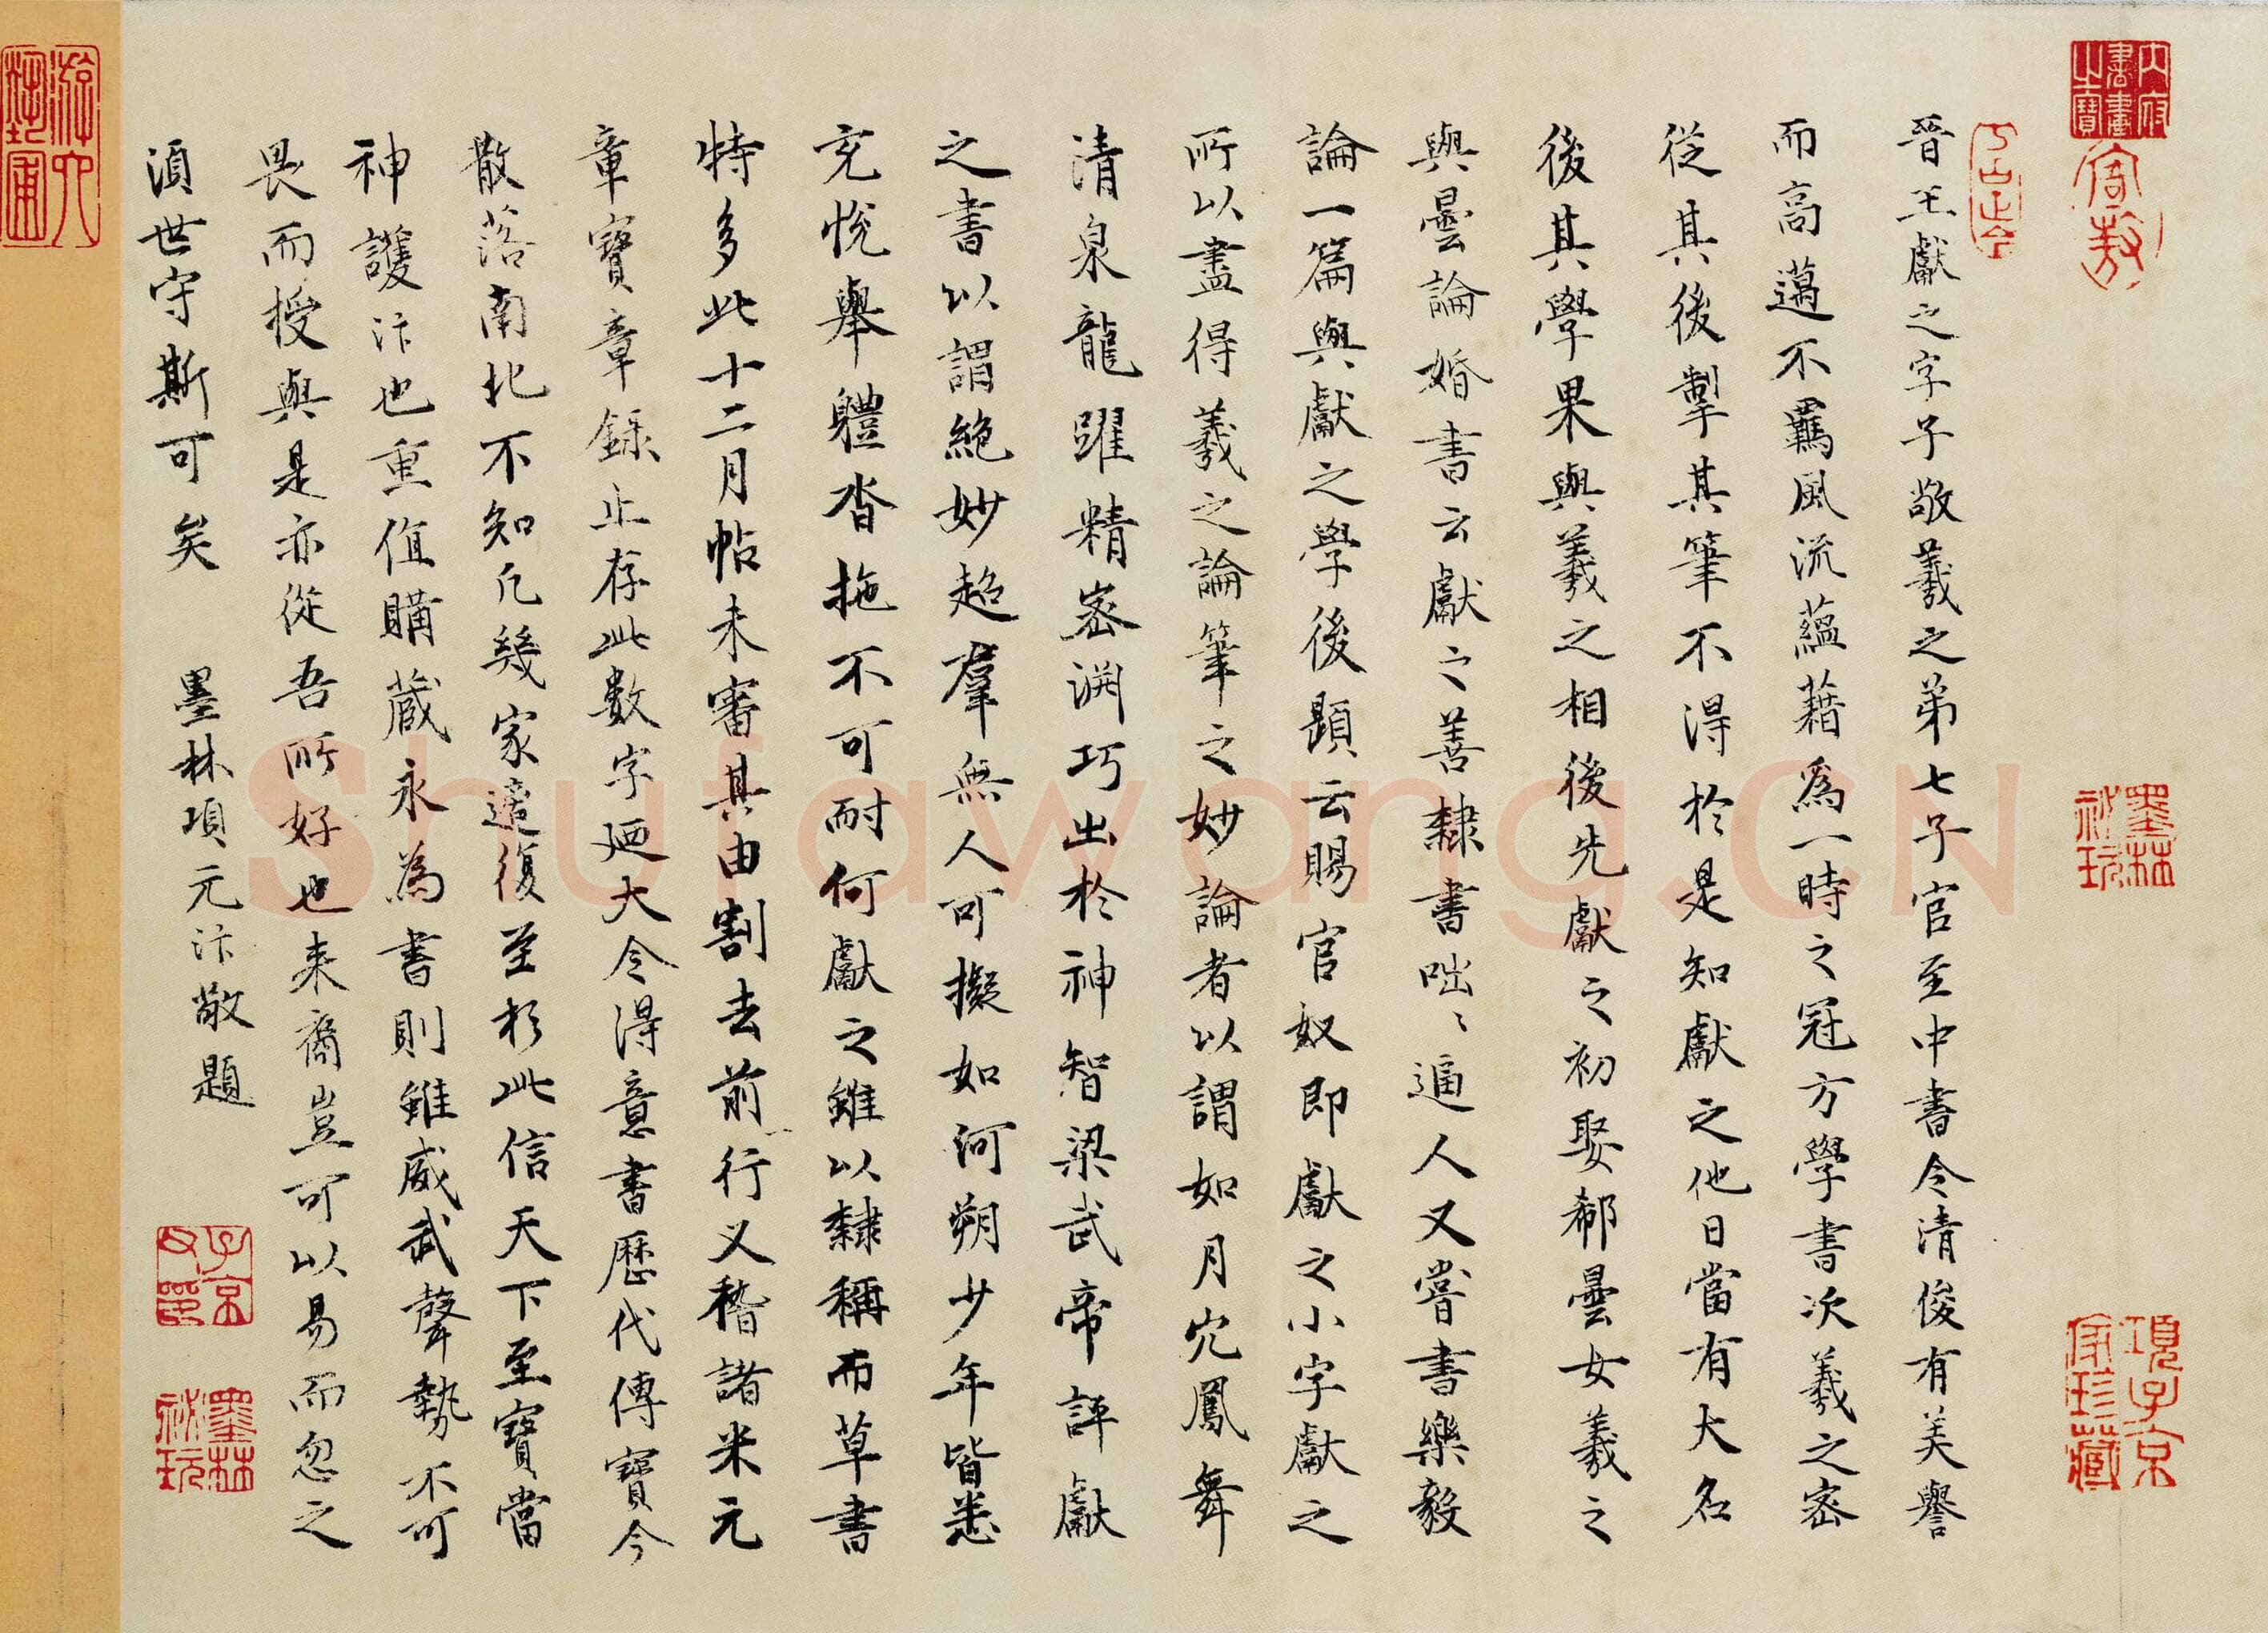 晉王獻之字子敬羲之弟七子官至中書令清俊有美譽
而高邁不羈風流蘊藉為一時之冠方學書次羲之密
從其後掣其筆不得於是知獻之他日當有大名
後其學果與羲之相後先獻之初娶郗曇女羲之
與曇論婚書云獻之善隸書咄咄逼人又嘗書樂毅
論一篇與獻之學後題云賜官奴即獻之小字獻之
所以盡得羲之論筆之妙論者以謂如月穴鳳舞
清泉龍躍精密淵巧出於神智梁武帝評獻
之書以謂絕妙超羣無人可擬如河朔少年皆悉
充悅舉體沓拖不可耐何獻之雖以隸稱而草書
特多此十二月帖未審其由割去前行又稽諸米元
章寶章錄止存此數字廼大令得意書歷代傳寶今
散落南北不知凡幾家遠復至於此信天下至寶當
神護汴也重值購藏永為書則雖威武聲勢不可
畏而授與是亦從吾所好也來裔豈可以易而忽之
湏世守斯可矣 墨林項元汴敬題
內府書畫之寶
墨林祕玩
項子京家珍藏
子京父印
墨林祕玩
Shufawang.CN